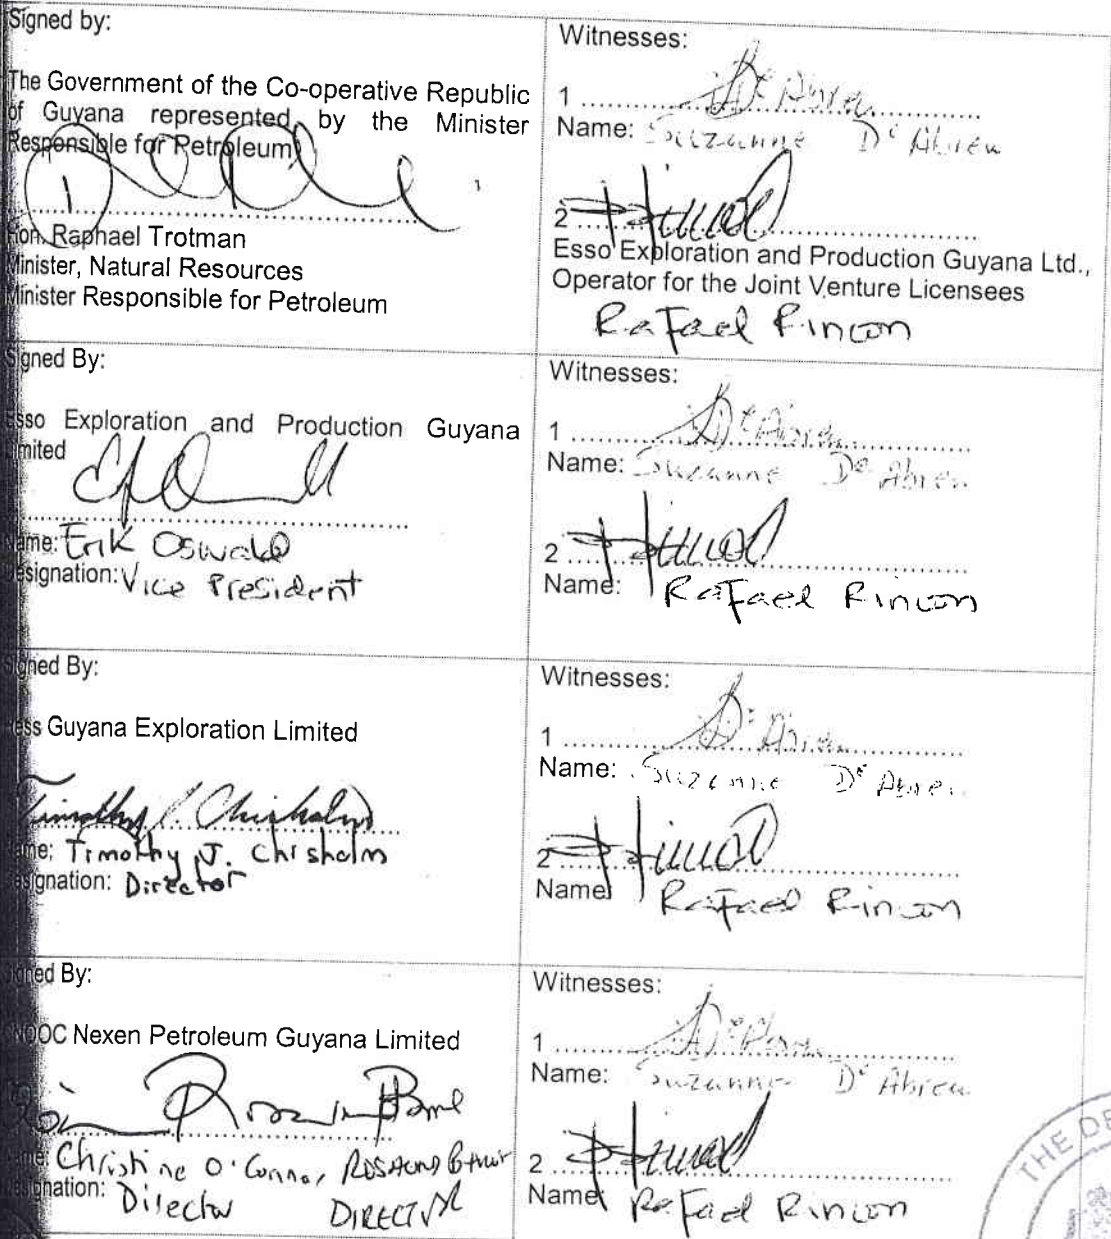 Signed by:
The Government of the Co-operative Republic
of Guyana represented by the Minister
Responsible for Petroleum
Hon. Raphael Trotman
Minister, Natural Resources
Minister Responsible for Petroleum
Witnesses:
1
Name: Suzanne De Abreu
2
Esso Exploration and Production Guyana Ltd.,
Operator for the Joint Venture Licensees
Rafael Rincon
Signed By:
Esso Exploration and Production Guyana
Limited
Name: Erik Oswald
Designation: Vice President
Witnesses:
1
Name: Suzanne De Abreu
2
Name: Rafael Rincon
Signed By:
Hess Guyana Exploration Limited
Timothy J. Chisholm
Name: Timothy J. Chisholm
Designation: Director
Witnesses:
1
Name: Suzanne De Abreu
2
Name Rafael Rincon
Signed By:
CNOOC Nexen Petroleum Guyana Limited
Name: Christine O'Connor
Designation: Director DIRECTOR
Witnesses:
1
Name: Suzanne De Abreu
2
Name: Rafael Rincon
THE DE